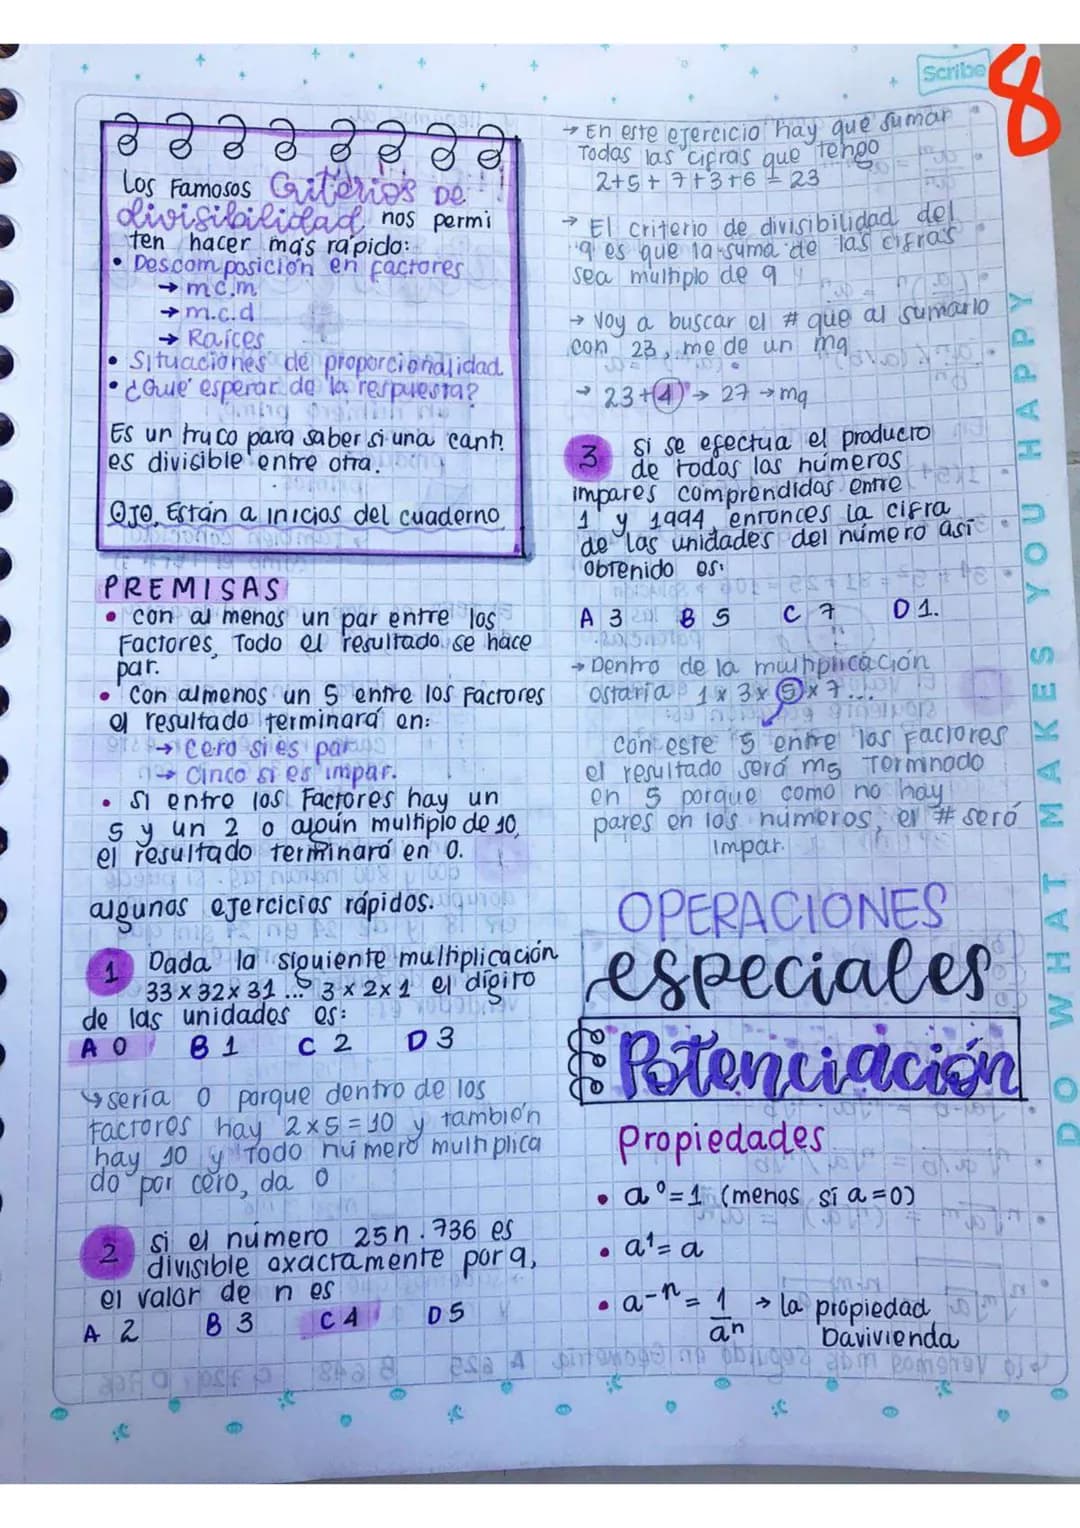 Scribe
8
Los Famosos Criterios De
divisibilidad nos permi
ten hacer más rápido:
• Descomposición en factores
→ m.c.m
→ m.c.d
→ Raíces
• Situaciones de proporcionalidad
• ¿Qué esperar de la respuesta?
Es un truco para saber si una cant.
es divisible entre otra.
OJO, Están a inicios del cuaderno
PREMISAS
• con al menos un par entre los
Factores, Todo el resultado se hace
par.
• Con almenos un 5 entre los Factores
el resultado terminará en:
→ Cero si es par
→ Cinco si es impar.
• Si entre los Factores hay un
5 y un 2 o algún multiplo de 10,
el resultado terminará en 0.
algunos ejercicios rápidos.
1 Dada la siguiente multiplicación
33 x 32 x 31 ... 3 x 2 x 1 el dígito
de las unidades es:
A 0 B 1 C 2 D 3
↳ sería 0 porque dentro de los
factores hay 2x5=10 y también
hay 10 y Todo número multiplica
do por cero, da 0
2 si el número 25n.736 es
divisible exactamente por 9,
el valor de n es
A 2 B 3 C 4 D 5
→ En este ejercicio hay que sumar
Todas las cifras que tengo
2+5+7+3+6 = 23
→ El criterio de divisibilidad del
9 es que la suma de las cifras
sea multiplo de 9
→ Voy a buscar el # que al sumarlo
con 23, me de un m9
→ 23+4 → 27 → m9
3 Si se efectua el producto
de todas las números
impares comprendidas entre
1 y 1994, entonces la cifra
de las unidades del número así
obtenido es:
A 3 B 5 C 7 D 1.
→ Dentro de la multiplicación
estaría 1 x 3 x 5 x 7...
Con este 5 entre los factores
el resultado será m5 Terminado
en 5 porque como no hay
pares en los números, el # será
impar.
OPERACIONES
especiales
Potenciación
Propiedades
• a⁰=1 (menos si a=0)
• a¹=a
• a⁻ⁿ = 1/aⁿ → la propiedad
Davivienda
DO WHAT MAKES YOU HAPPY